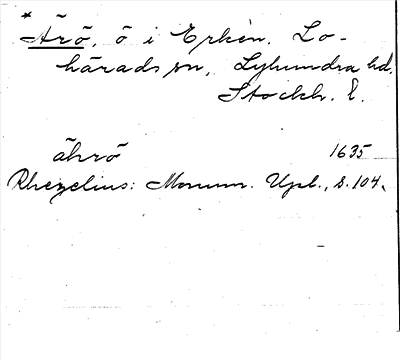 * Ärö, ö i Erken, Lo-
härads sn, Lyhundra hd,
Stockh. l.
åhrö 1635
Rhezelius: Monum. Upl., s. 104.